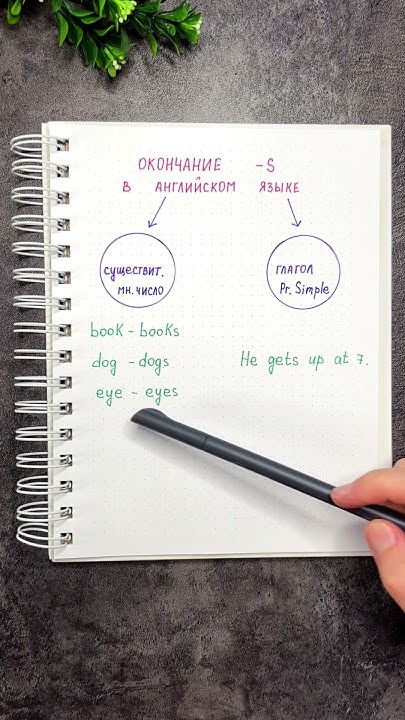 ОКОНЧАНИЕ -S
В АНГЛИЙСКОМ ЯЗЫКЕ
существит.
мн. число
глагол
Pr. Simple
book - books
dog - dogs
He gets up at 7.
eye - eyes